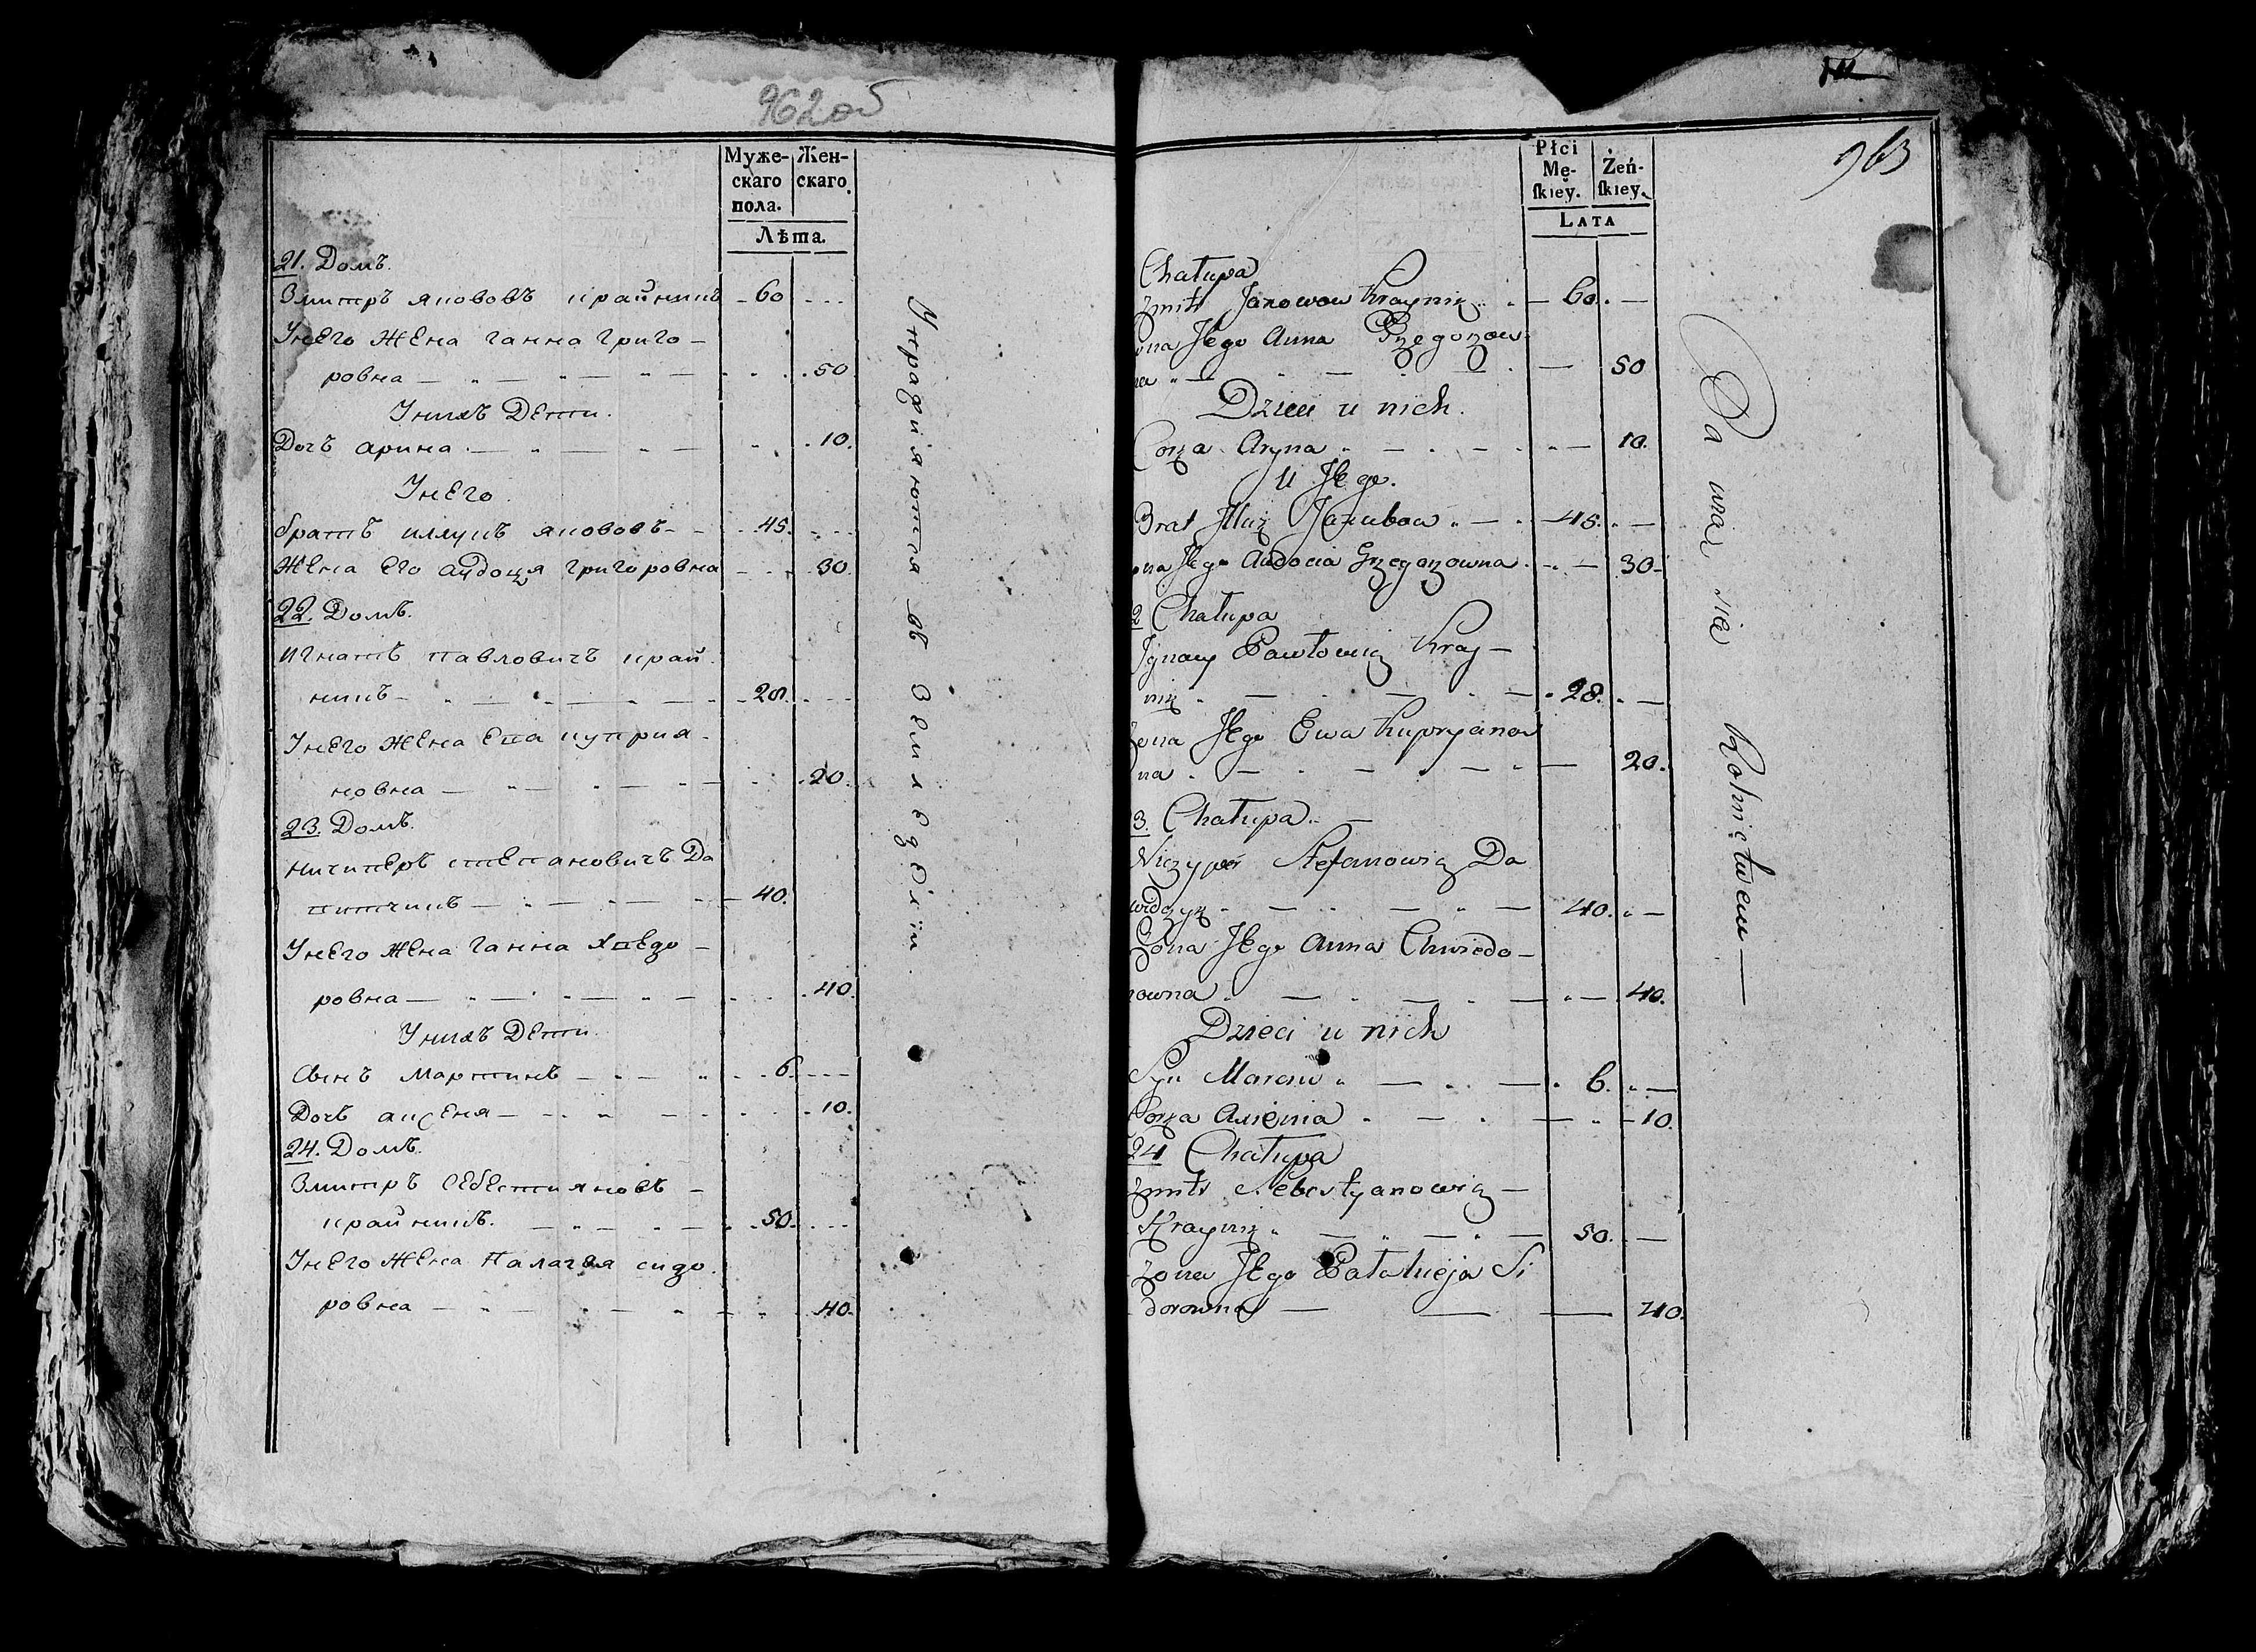 962 об
Муже-
скаго
пола.
Жен-
скаго.
Лѣта.
21. Домъ.
Змитръ якововъ крайникъ - 60
Унего жена ганна григо-
ровна 50
Унихъ Дети.
Дочъ арина 10.
Унего.
братъ иллукъ якововъ 45.
жена его аѵдоця григоровна 30.
22. Домъ.
игнатъ павловичъ край
никъ 28.
Унего жена ева куприя-
новна 20.
23. Домъ.
ничипоръ степановичъ Да
витчикъ 40.
Унего жена ганна хведо-
ровна 40.
Унихъ Дети.
Сынъ мартинъ 6.
Дочъ аксеня 10.
24. Домъ.
Змитръ себестияновъ
крайникъ. 50.
Унего жена палагея сидо.
ровна 40.
въ
963
Płci
Mę-
skiey.
Żeń-
skiey.
LATA
Chałupa
Zmitr Jakowow Kraynik 60.
ona Jego Anna Grzegorzow
na 50
Dzieci u nich.
Corka Aryna 10.
U Jego.
Brat Jlluk Jakubow 45.
ona Jego Audocia Grzegorzowna 30
2 Chałupa
Jgnacy Pawłowicz Kray-
nik 28.
Zona Jego Ewa Kupryanow
na 20.
3. Chałupa.
Niczypor Stefanowicz Da
widczyk 40.
Zona Jego Anna Chwiedo-
rowna 40.
Dzieci u nich
Syn Marcin 6.
Corka Axienia 10.
24 Chałupa
Zmitr Sebestyanowicz
Kraynik 50.
Zona Jego Pałahieja Si
dorowna 40.
Bawia sie Rolnictwem